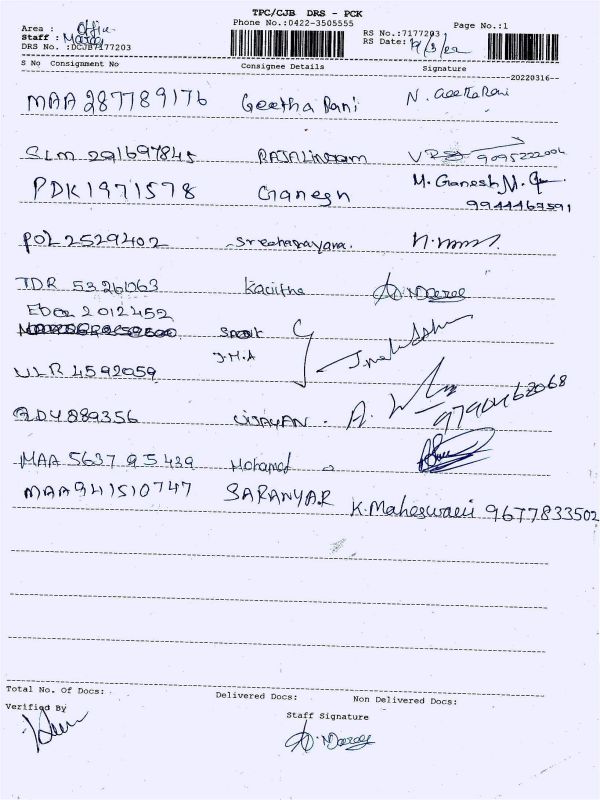 TPC/CJB DRS - PCK
Phone No.:0422-3505555
Area : Office
Staff :
DRS No. :DCJB7177203
RS No.:7177203
RS Date: 19/3/22
Page No.:1
S No Consignment No Consignee Details Signature
20220316
MAA 287789176 Geetha Rani N. Geetha Rani
SLM 291697845 RAJALINGAM 9095222004
PDK 1971578 Ganesh M. Ganesh M. G
9944467591
POL 2529402
TDR 53261063 Kavitha
2012452
J.M.A
VLR 4592059
889356 VIJAYAN. 9790462068
MAA 5637 95439 Mohamed
MAA941510747 SARANYAR K.Maheswari 9677833502
Total No. Of Docs: Delivered Docs: Non Delivered Docs:
Verified By
Staff Signature